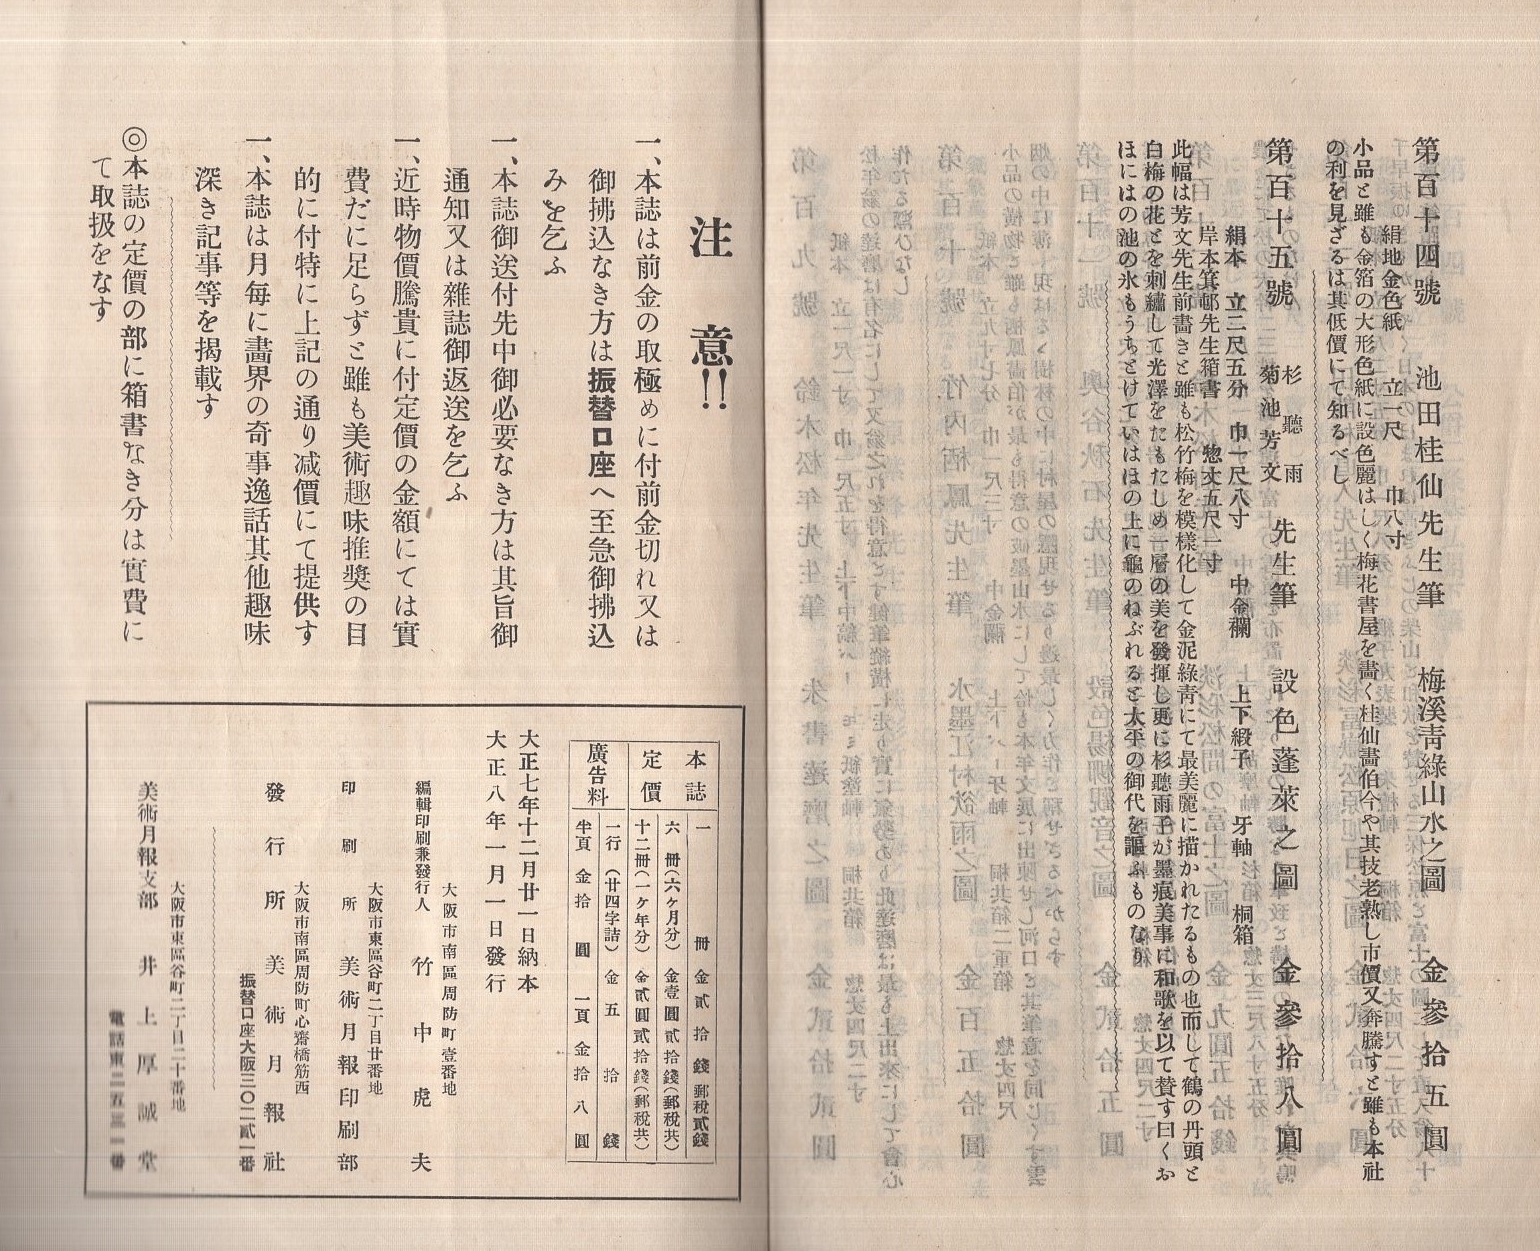 第百十四號 池田桂仙先生筆 梅溪青綠山水之圖 金參拾五圓
絹地金色紙 立一尺 巾八寸
小品と雖も金箔の大形色紙に設色麗はしく梅花書屋を畵く桂仙畵伯今や其技老熟し市價又奔騰すと雖も本社
の利を見ざるは其低價にて知るべし
第百十五號 杉聽雨 菊池芳文 先生筆 設色蓬萊之圖 金參拾八圓
絹本 立二尺五分 巾一尺八寸 中金襴 上下緞子 牙軸 桐箱
岸本箕邨先生箱書 惣丈五尺一寸
此幅は芳文先生前畵きと雖も松竹梅を模樣化して金泥綠靑にて最美麗に描かれたるもの也而して鶴の丹頭と
白梅の花とを刺繡して光澤をたもたしめ一層の美を發揮し更に杉聽雨子が墨痕美事に和歌を以て賛す曰くお
ほにはの池の氷もうちとけていはほの上に龜のねぶれると太平の御代を謳ふものなり
注意!!
一、本誌は前金の取極めに付前金切れ又は
御拂込なき方は振替口座へ至急御拂込
みを乞ふ
一、本誌御送付先中御必要なき方は其旨御
通知又は雜誌御返送を乞ふ
一、近時物價騰貴に付定價の金額にては實
費だに足らずと雖も美術趣味推奬の目
的に付特に上記の通り減價にて提供す
一、本誌は月每に畵界の奇事逸話其他趣味
深き記事等を揭載す
◎本誌の定價の部に箱書なき分は實費に
て取扱をなす
本誌定價
一冊 金貳拾錢 郵稅貳錢
六冊(六ヶ月分) 金壹圓貳拾錢(郵稅共)
十二冊(一ヶ年分) 金貳圓貳拾錢(郵稅共)
廣告料
一行(廿四字詰) 金五拾錢
半頁 金拾圓 一頁 金拾八圓
大正七年十二月廿一日納本
大正八年一月一日發行
大阪市南區周防町壹番地
編輯印刷兼發行人 竹中虎夫
大阪市東區谷町二丁目廿番地
印刷所 美術月報印刷部
大阪市南區周防町心齋橋筋西
發行所 美術月報社
振替口座大阪三〇二貳一番
大阪市東區谷町二丁目二十番地
美術月報支部 井上厚誠堂
電話東二五三一番